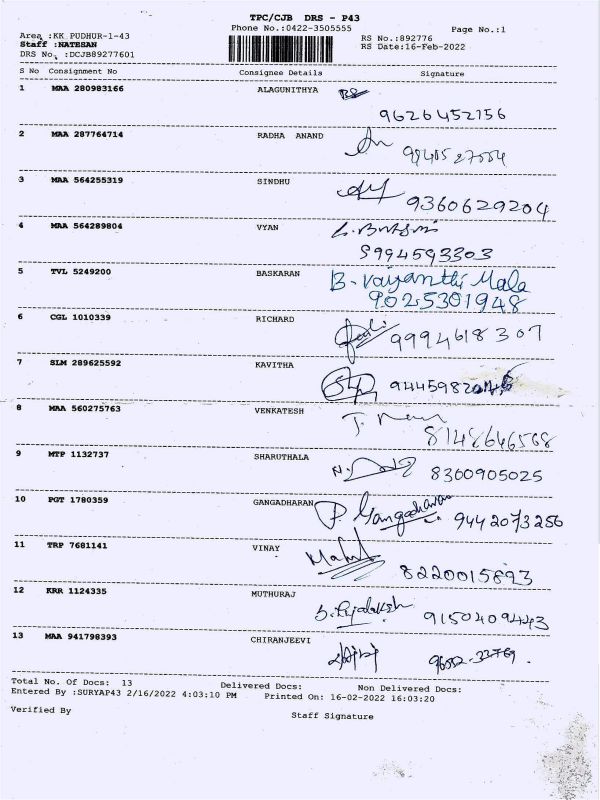 TPC/CJB DRS - P43
Phone No.:0422-3505555 Page No.:1
Area :KK PUDHUR-1-43
Staff :NATESAN RS No.:892776
DRS No. :DCJB89277601 RS Date:16-Feb-2022
S No Consignment No Consignee Details Signature
1 MAA 280983166 ALAGUNITHYA
9626452156
2 MAA 287764714 RADHA ANAND
3 MAA 564255319 SINDHU
9360629204
4 MAA 564289804 VYAN
9994593303
5 TVL 5249200 BASKARAN B. Vaijanthi Mala
9025301948
6 CGL 1010339 RICHARD 9994618307
7 SLM 289625592 KAVITHA
8 MAA 560275763 VENKATESH
8148646568
9 MTP 1132737 SHARUTHALA 8300905025
10 PGT 1780359 GANGADHARAN P. Gangadharan 9442073256
11 TRP 7681141 VINAY
8220015893
12 KRR 1124335 MUTHURAJ 9150409443
13 MAA 941798393 CHIRANJEEVI
Total No. Of Docs: 13 Delivered Docs: Non Delivered Docs:
Entered By :SURYAP43 2/16/2022 4:03:10 PM Printed On: 16-02-2022 16:03:20
Verified By Staff Signature